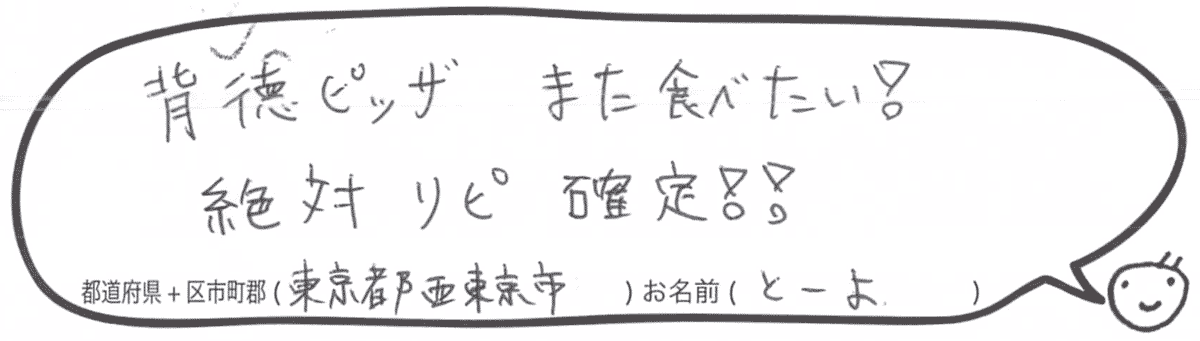 背徳ピッザ また食べたい!
絶対リピ確定!!
都道府県+区市町郡(東京都西東京市)お名前(とーよ)